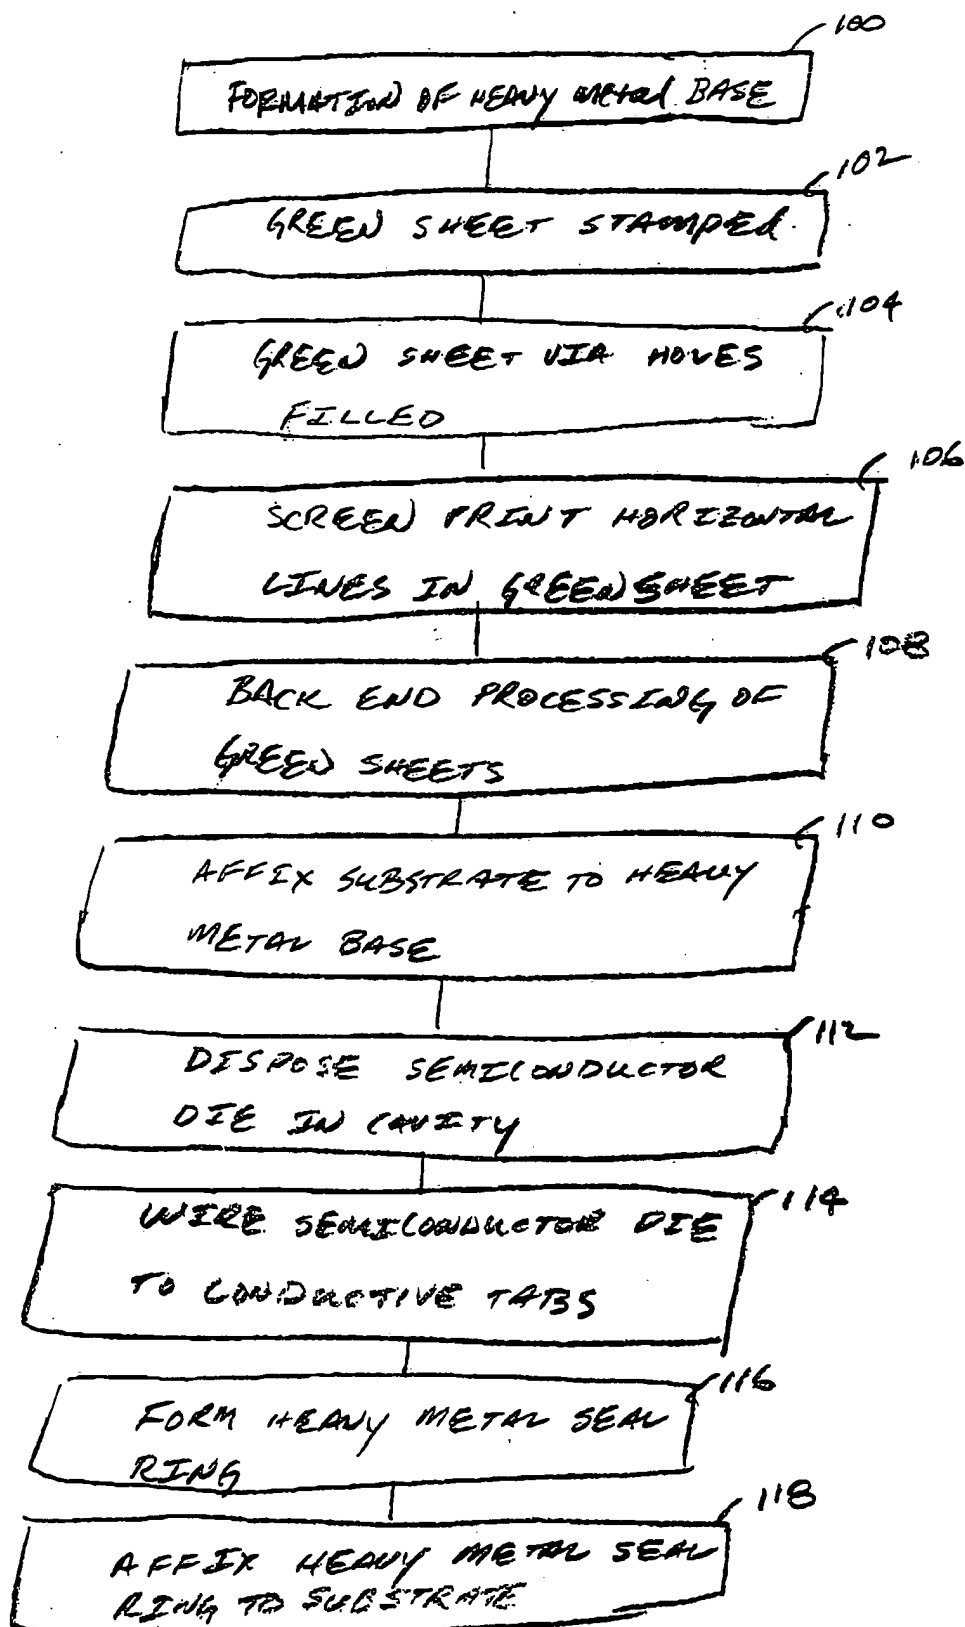 100
FORMATION OF HEAVY metal BASE
102
GREEN SHEET STAMPED.
104
GREEN SHEET VIA HOLES
FILLED
106
SCREEN PRINT HORIZONTAL
LINES IN GREEN SHEET
108
BACK END PROCESSING OF
GREEN SHEETS
110
AFFIX SUBSTRATE TO HEAVY
METAL BASE
112
DISPOSE SEMICONDUCTOR
DIE IN CAVITY
114
WIRE SEMICONDUCTOR DIE
TO CONDUCTIVE TABS
116
FORM HEAVY METAL SEAL
RING
118
AFFIX HEAVY METAL SEAL
RING TO SUBSTRATE